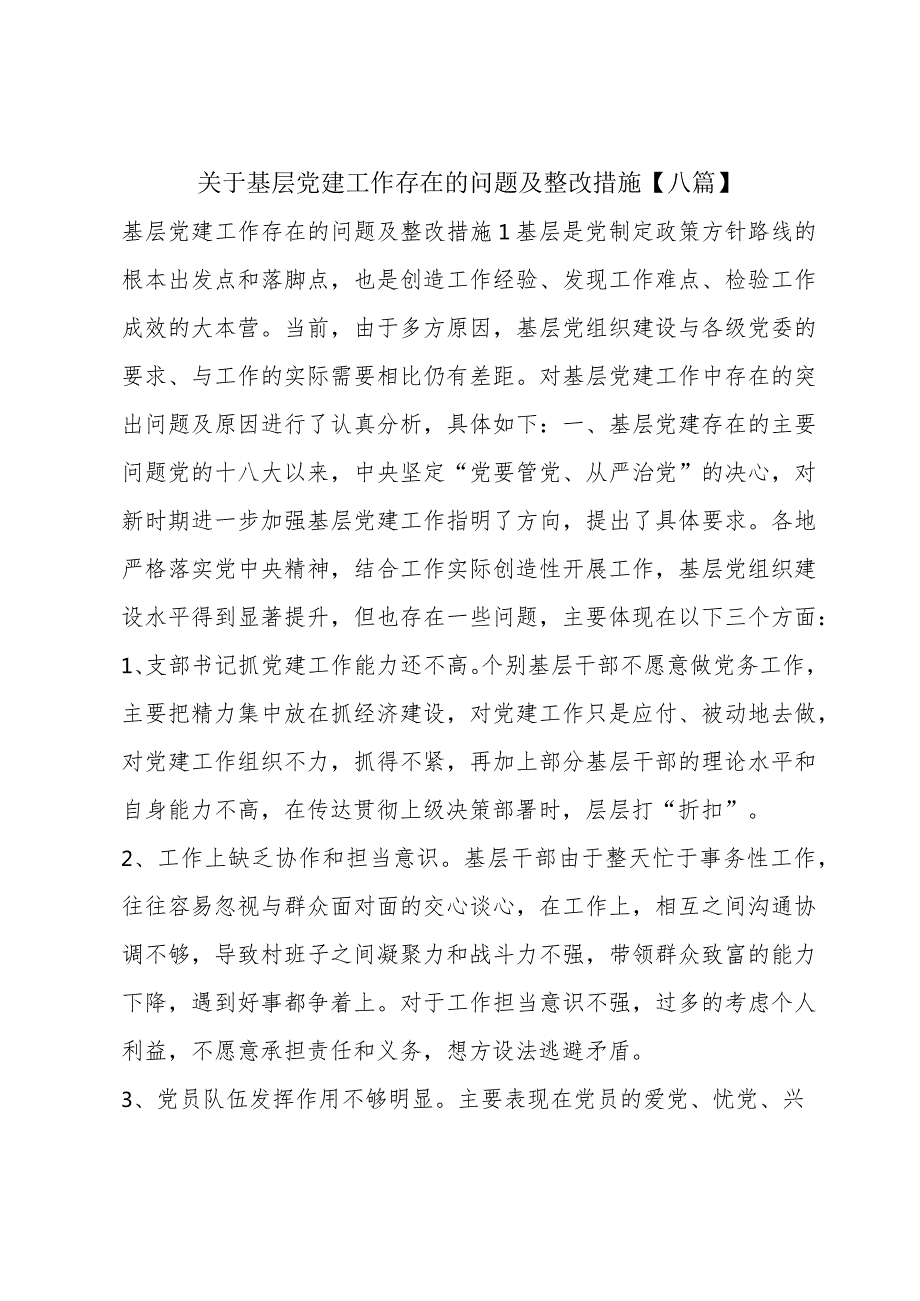 关于基层党建工作存在的问题及整改措施【八篇】
基层党建工作存在的问题及整改措施1基层是党制定政策方针路线的
根本出发点和落脚点，也是创造工作经验、发现工作难点、检验工作
成效的大本营。当前，由于多方原因，基层党组织建设与各级党委的
要求、与工作的实际需要相比仍有差距。对基层党建工作中存在的突
出问题及原因进行了认真分析，具体如下：一、基层党建存在的主要
问题党的十八大以来，中央坚定“党要管党、从严治党”的决心，对
新时期进一步加强基层党建工作指明了方向，提出了具体要求。各地
严格落实党中央精神，结合工作实际创造性开展工作，基层党组织建
设水平得到显著提升，但也存在一些问题，主要体现在以下三个方面：
1、支部书记抓党建工作能力还不高。个别基层干部不愿意做党务工作，
主要把精力集中放在抓经济建设，对党建工作只是应付、被动地去做，
对党建工作组织不力，抓得不紧，再加上部分基层干部的理论水平和
自身能力不高，在传达贯彻上级决策部署时，层层打“折扣”。
2、工作上缺乏协作和担当意识。基层干部由于整天忙于事务性工作，
往往容易忽视与群众面对面的交心谈心，在工作上，相互之间沟通协
调不够，导致村班子之间凝聚力和战斗力不强，带领群众致富的能力
下降，遇到好事都争着上。对于工作担当意识不强，过多的考虑个人
利益，不愿意承担责任和义务，想方设法逃避矛盾。
3、党员队伍发挥作用不够明显。主要表现在党员的爱党、忧党、兴